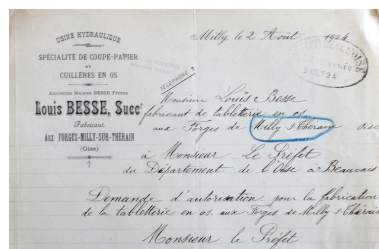 USINE HYDRAULIQUE
SPÉCIALITÉ DE COUPE-PAPIER
ET
CUILLÈRES EN OS
Ancienne Maison BESSE Frères
Louis BESSE, Succr
Fabricant
Aux FORGES-MILLY-SUR-THÉRAIN
(Oise)
TÉLÉPHONE
Milly le 2 Août 1924
Monsieur Louis Besse
fabricant de tabletterie en os
aux Forges de Milly s/Thérain Oise
à Monsieur Le Préfet
du Département de l'Oise à Beauvais
Demande d'autorisation pour la fabrication
de la tabletterie en os. aux Forges de Milly s/Thérain
Monsieur le Préfet